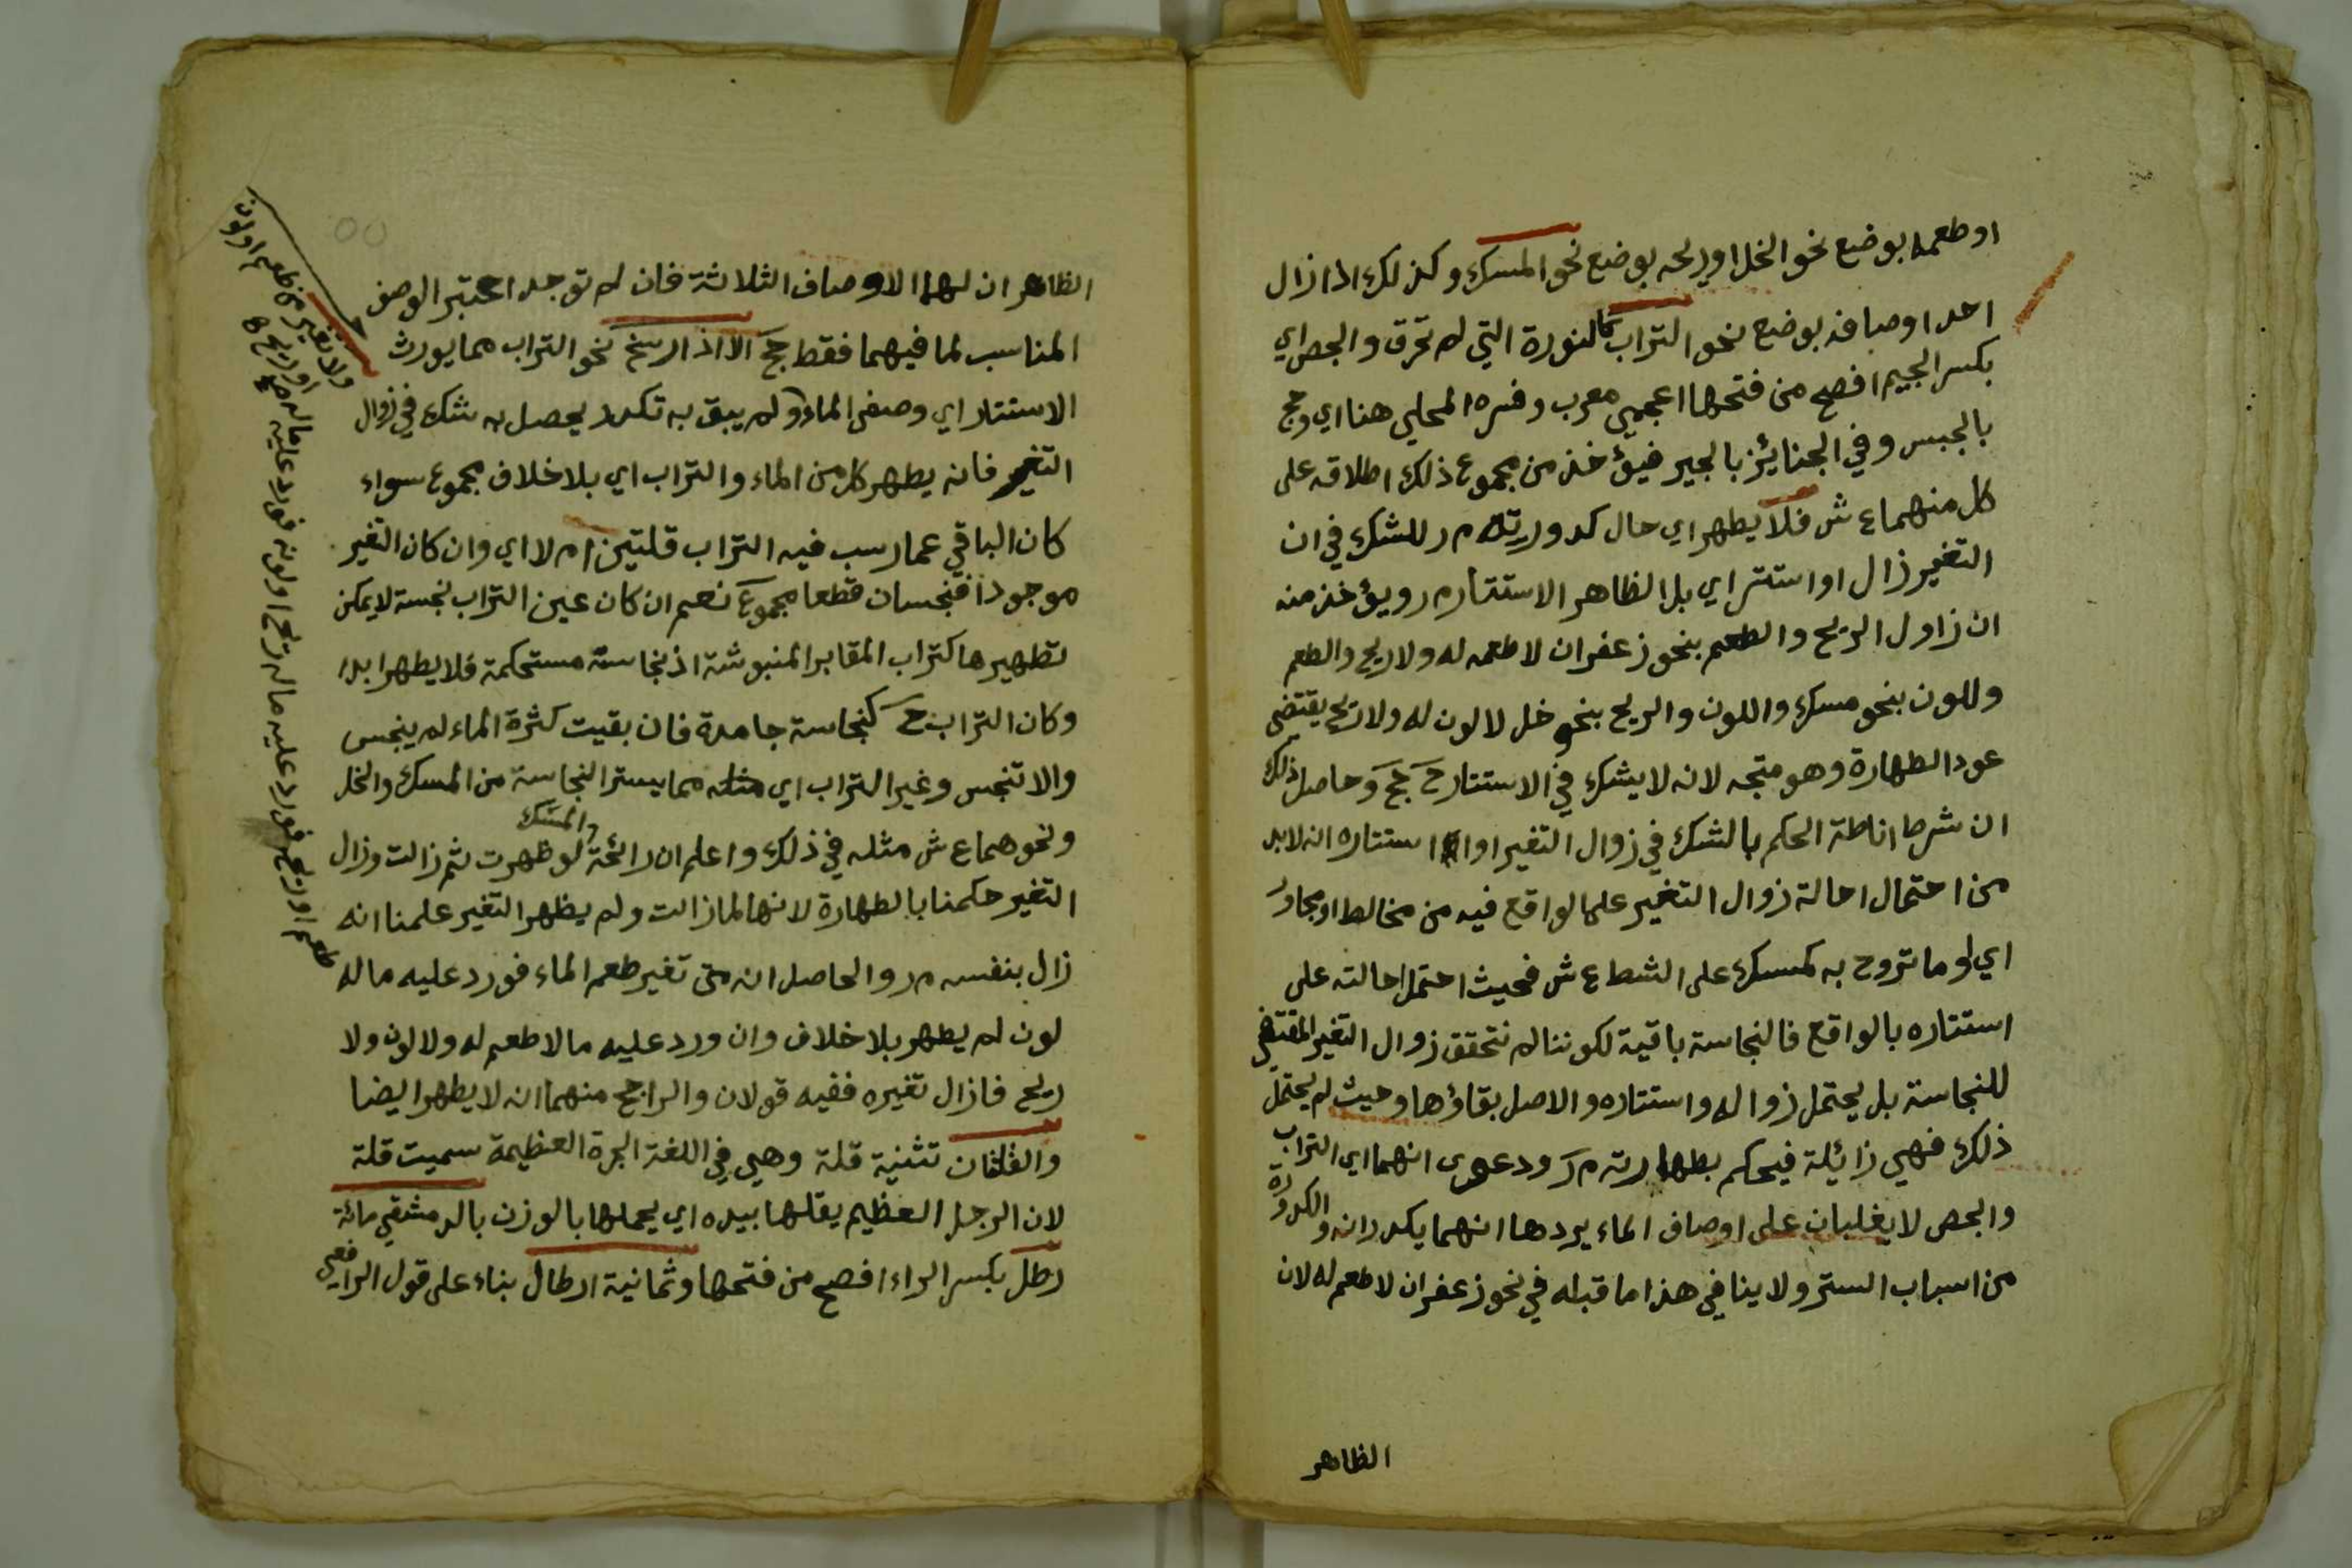 او طعمه بوضع نحو الخل اوريحه بوضع نحو المسك وكذلك اذا زال
احد اوصافه بوضع نحو التراب كالنورة التي لم تحرق والجص اي
بكسر الجيم افصح من فتحها اعجمي معرب وفسره المحلي هنا اي وحج
بالجبس وفي الجنايز بالجير فيؤخذ من مجموع ذلك اطلاقه على
كل منهما ع ش فلا يطهر اي حال كدورته م ر للشك في ان
التغير زال او استتر اي بل الظاهر الاستتار م ر ويؤخذ منه
ان زاول الريح والطعم بنحو زعفران لا طعمه له ولا ريح والطعم
وللون بنحو مسك واللون والريح بنحو خل لا لون له ولا ريح يقتضي
عود الطهارة وهو متجه لانه لا يشك في الاستتار ح حج وحاصل ذلك
ان شرط اناطة الحكم بالشك في زوال التغير او استتاره انه لابد
من احتمال احالة زوال التغير على الواقع فيه من مخالط او مجاور
اي لو ما تروح به كمسك على الشط ع ش فحيث احتمل احالته على
استتاره بالواقع فالنجاسة باقية لكوننا لم نتحقق زوال التغير المقتضي
للنجاسة بل يحتمل زواله واستتاره والاصل بقاؤها وحيث لم يحتمل
ذلك فهي زائلة فيحكم بطهارته م ر ودعوى انهما اي التراب
والجص لا يغلبان على اوصاف الماء يردها انهما يكدرانه والكدورة
من اسباب الستر ولا ينافي هذا ما قبله في نحو زعفران لا طعم له لان
الظاهر
الظاهر ان لهما الاوصاف الثلاثة فان لم توجد اعتبر الوصف
المناسب لما فيهما فقط حج الا اذا رسخ نحو التراب مما يورث
الاستتار اي وصفى الماء ولم يبق به تكدر يحصل به شك في زوال
التغير فانه يطهر كل من الماء والتراب اي بلا خلاف مجموع سواء
كان الباقي عما رسب فيه التراب قلتين ام لا اي وان كان التغير
موجودا فنجسان قطعا مجموع نعم ان كان عين التراب نجسة لا يمكن
تطهيرها كتراب المقابر المنبوشة اذ نجاسته مستحكمة فلا يطهر ابدا
وكان التراب ح كنجاسة جامدة فان بقيت كثرة الماء لم ينجس
والا تنجس وغير التراب اي مثله مما يستر النجاسة من المسك والخل
ونحوهما ع ش مثله في ذلك واعلم ان رائحة المسك لو ظهرت ثم زالت وزال
التغير حكمنا بالطهارة لانها لما زالت ولم يظهر التغير علمنا انه
زال بنفسه م ر والحاصل انه متى تغير طعم الماء فورد عليه ماله
لون لم يطهر بلا خلاف وان ورد عليه مالا طعم له ولا لون ولا
ريح فازال تغيره ففيه قولان والراجح منهما انه لا يطهر ايضا
والقلتان تثنية قلة وهي في اللغة الجرة العظيمة سميت قلة
لان الرجل العظيم يقلها بيده اي يحملها بالوزن بالدمشقي مائة
رطل بكسر الراء افصح من فتحها وثمانية ارطال بناء على قول الرافعي
طعم او ريح فورد عليه ماله ريح او لونه فورد عليه ماله